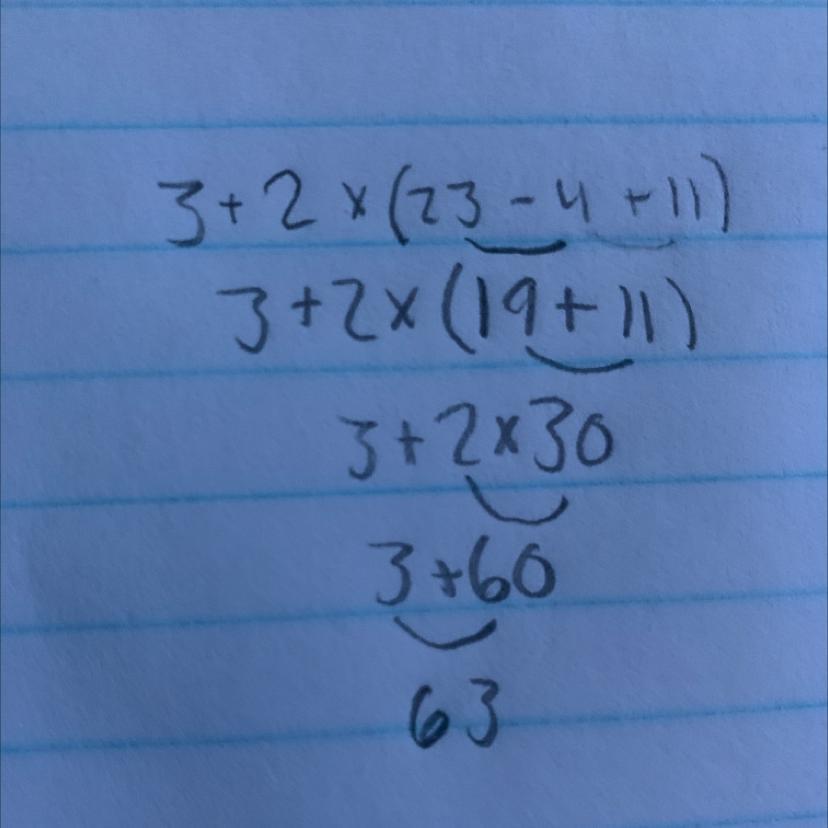 3 + 2 × (23 - 4 + 11)
3 + 2 × (19 + 11)
3 + 2 × 30
3 + 60
63